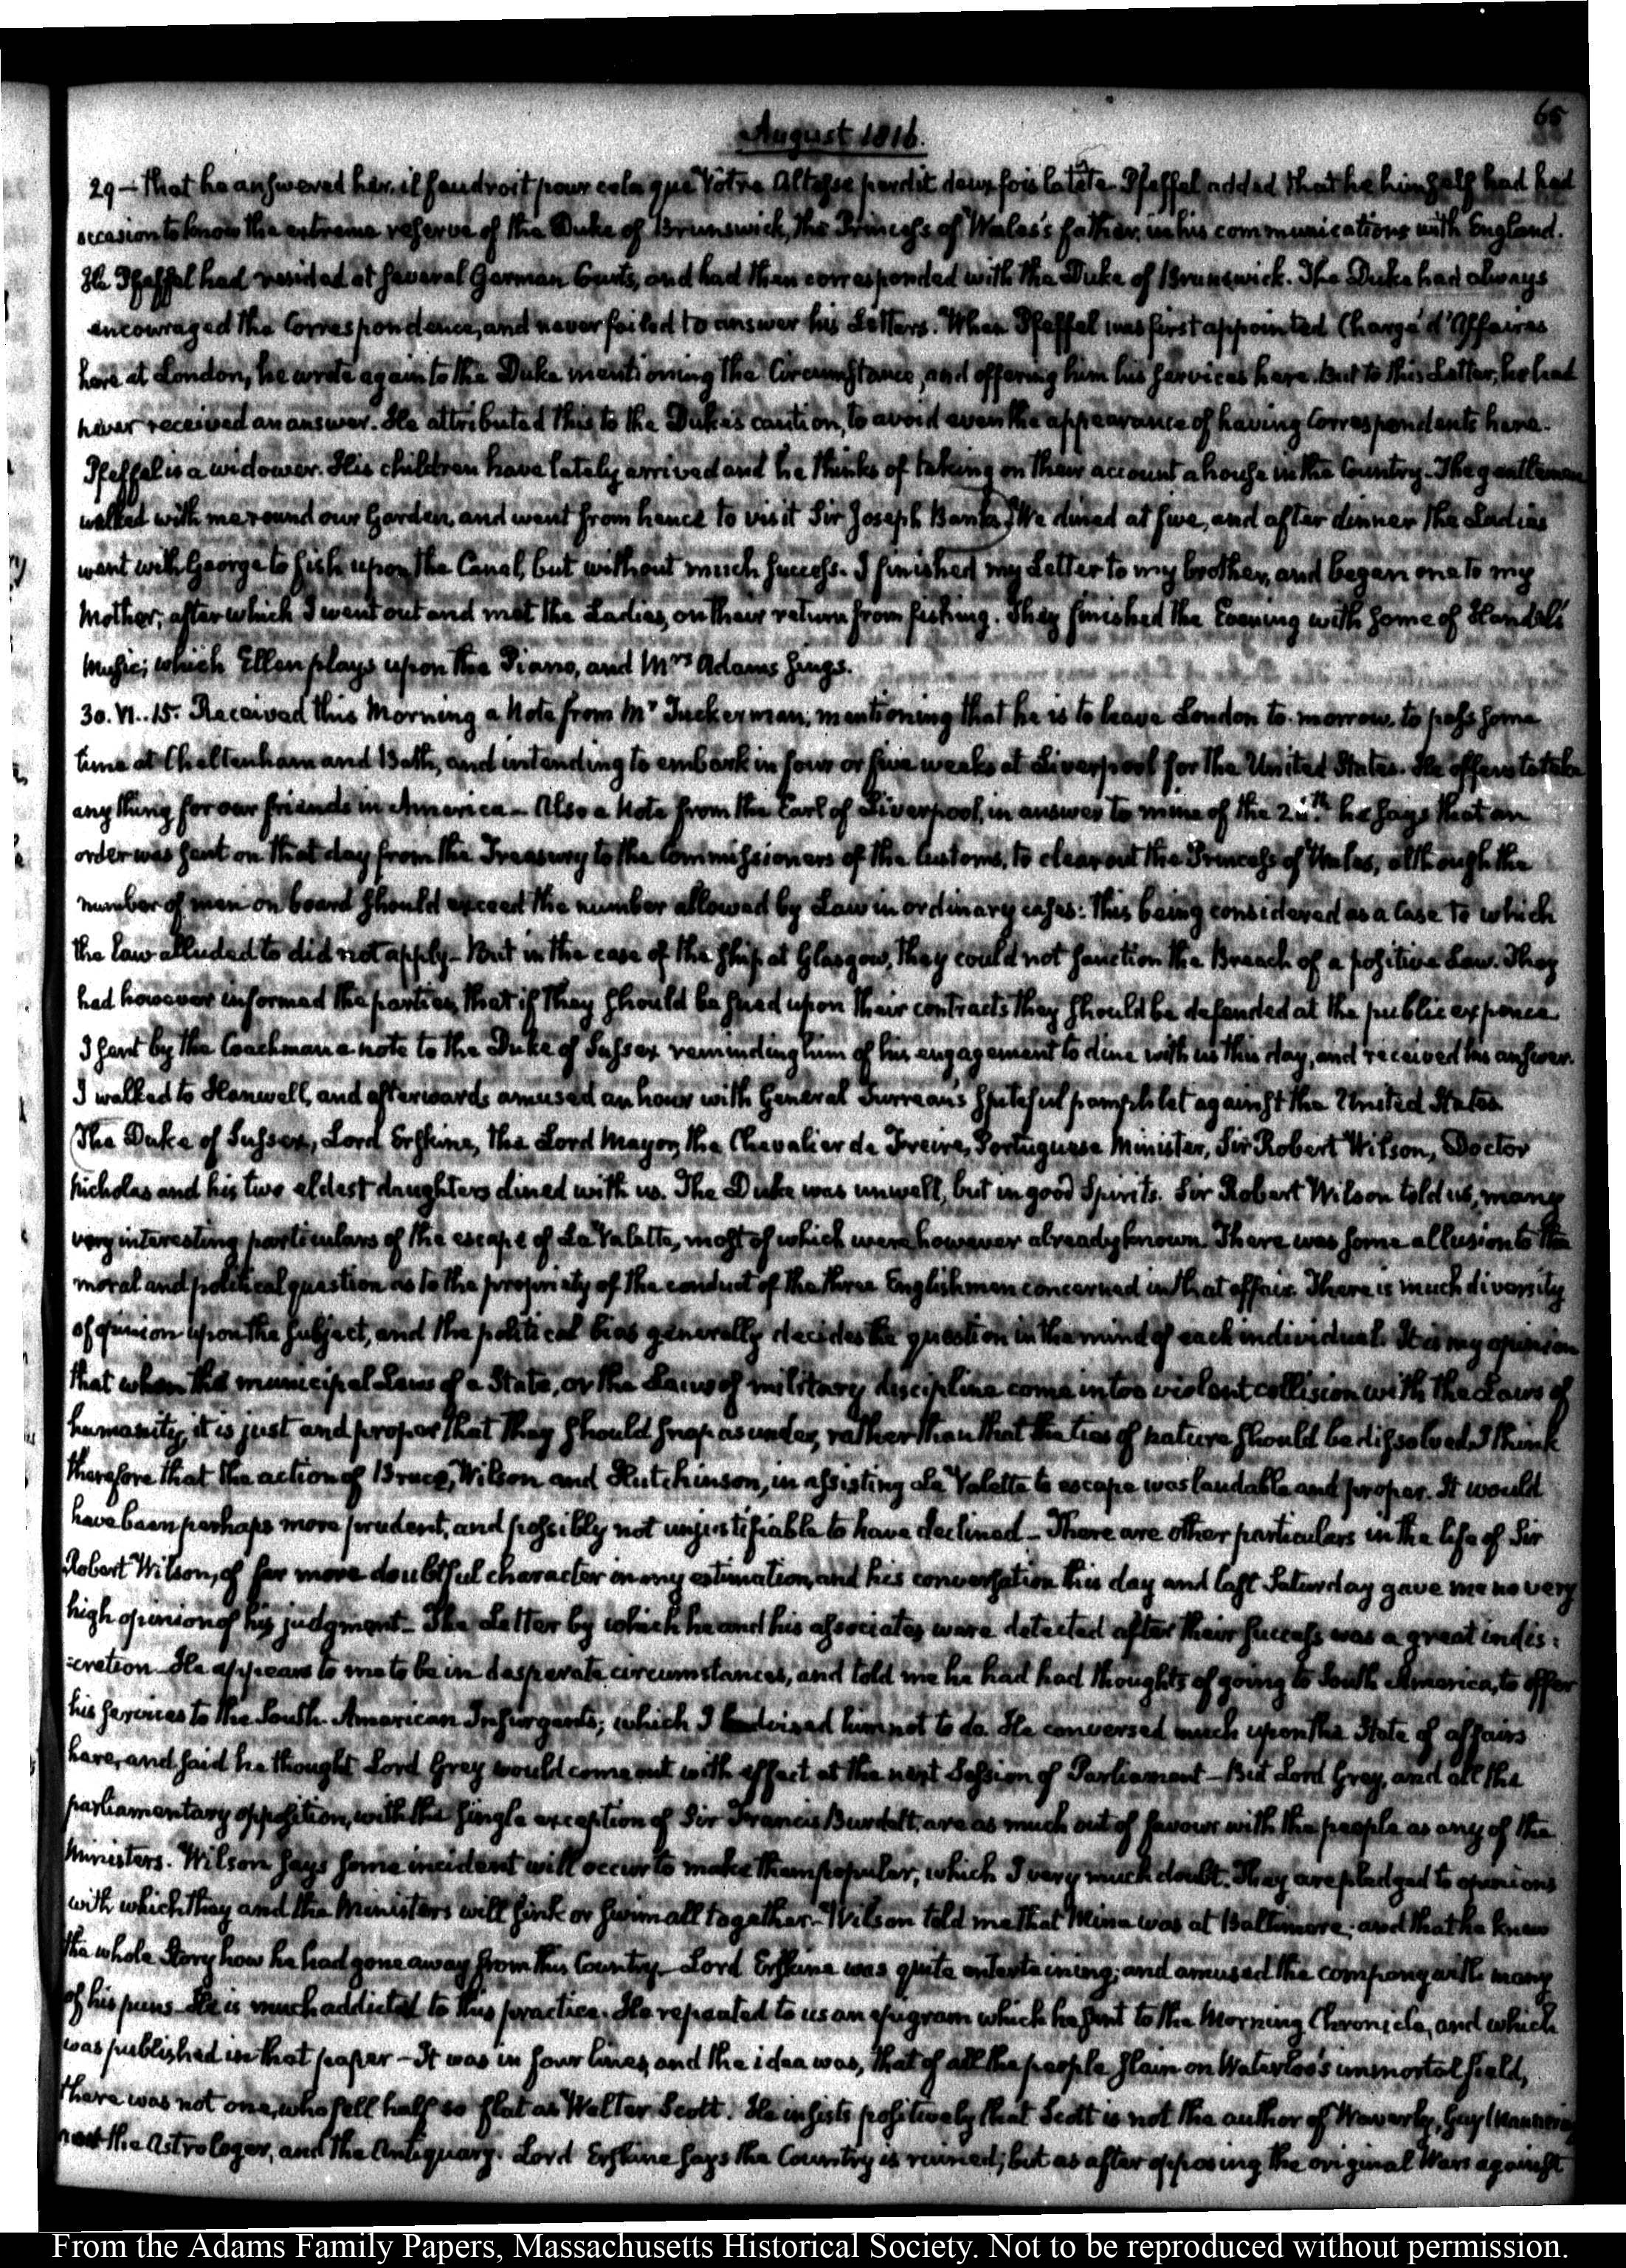 65
August 1816.
29 – that he answered her, il faudroit pour cela que Vôtre Altesse perdit deux fois la tête. Pfeffel added that he himself had had
occasion to know the extreme reserve of the Duke of Brunswick, the Princess of Wales's father, in his communications with England.
He Pfeffel had resided at several German Courts, and had then corresponded with the Duke of Brunswick. The Duke had always
encouraged the Correspondence, and never failed to answer his Letters. When Pfeffel was first appointed Chargé d'Affaires
here at London, he wrote again to the Duke mentioning the Circumstance, and offering him his services here. But to this Letter, he had
never received an answer. He attributed this to the Duke's caution, to avoid even the appearance of having Correspondents here.
Pfeffel is a widower. His children have lately arrived and he thinks of taking on their account a house in the Country. The gentlemen
walked with me round our Garden, and went from hence to visit Sir Joseph Banks. We dined at five, and after dinner the Ladies
went with George to fish upon the Canal, but without much success. I finished my Letter to my brother, and began one to my
Mother; after which I went out and met the Ladies, on their return from fishing. They finished the Evening with some of Handel's
Music; which Ellen plays upon the Piano, and Mrs Adams sings.
30. VI..15. Received this Morning a Note from Mr Tuckerman, mentioning that he is to leave London to-morrow, to pass some
time at Cheltenham and Bath, and intending to embark in four or five weeks at Liverpool for the United States. He offers to take
any thing for our friends in America – Also a Note from the Earl of Liverpool, in answer to mine of the he says that an
order was sent on that day from the Treasury to the Commissioners of the Customs, to clear out the Princess of Wales, although the
number of men on board should exceed the number allowed by Law in ordinary cases: this being considered as a Case to which
the Law alluded to did not apply – But in the case of the ship at Glasgow, they could not sanction the Breach of a positive Law. They
had however informed the parties, that if they should be sued upon their contracts they should be defended at the public expence.
I sent by the Coachman a note to the Duke of Sussex reminding him of his engagement to dine with us this day, and received his answer.
I walked to Hanwell, and afterwards amused an hour with General Turreau's spiteful pamphlet against the United States.
The Duke of Sussex, Lord Erskine, the Lord Mayor, the Chevalier de Freire, Portuguese Minister, Sir Robert Wilson, Doctor
Nicholas and his two eldest daughters dined with us. The Duke was unwell, but in good Spirits. Sir Robert Wilson told us, many
very interesting particulars of the escape of La Valette, most of which were however already known. There was some allusion to the
moral and political question as to the propriety of the conduct of the three Englishmen concerned in that affair. There is much diversity
of opinion upon the subject, and the political bias generally decides the question in the mind of each individual. It is my opinion
that when the municipal Laws of a State, or the Laws of military discipline come in too violent collision with the Laws of
humanity, it is just and proper that they should snap asunder, rather than that the ties of nature should be dissolved. I think
therefore that the action of Bruce, Wilson and Hutchinson, in assisting La Valette to escape was laudable and proper. It would
have been perhaps more prudent, and possibly not unjustifiable to have declined – There are other particulars in the life of Sir
Robert Wilson, of far more doubtful character in my estimation, and his conversation this day and last Saturday gave me no very
high opinion of his judgment – The Letter by which he and his associates were detected after their success was a great indis=
=cretion – He appears to me to be in desperate circumstances, and told me he had had thoughts of going to South America, to offer
his services to the South-American Insurgents; which I advised him not to do. He conversed much upon the State of affairs
here, and said he thought Lord Grey would come out with effect at the next Session of Parliament – But Lord Grey, and all the
parliamentary opposition, with the single exception of Sir Francis Burdett, are as much out of favour with the people as any of the
Ministers. Wilson says some incident will occur to make them popular, which I very much doubt. They are pledged to opinions
with which they and the Ministers will sink or swim all together – Wilson told me that Mina was at Baltimore; and that he knew
the whole Story how he had gone away from this Country – Lord Erskine was quite entertaining; and amused the company with many
of his puns – He is much addicted to this practice. He repeated to us an epigram which he sent to the Morning Chronicle, and which
was published in that paper – It was in four lines, and the idea was, that of all the people slain on Waterloo's immortal field,
there was not one, who fell half so flat as Walter Scott. He insists positively that Scott is not the author of Waverly, Guy Mannering
the Astrologer, and the Antiquary. Lord Erskine says the Country is ruined; but as after opposing the original Wars against
From the Adams Family Papers, Massachusetts Historical Society. Not to be reproduced without permission.